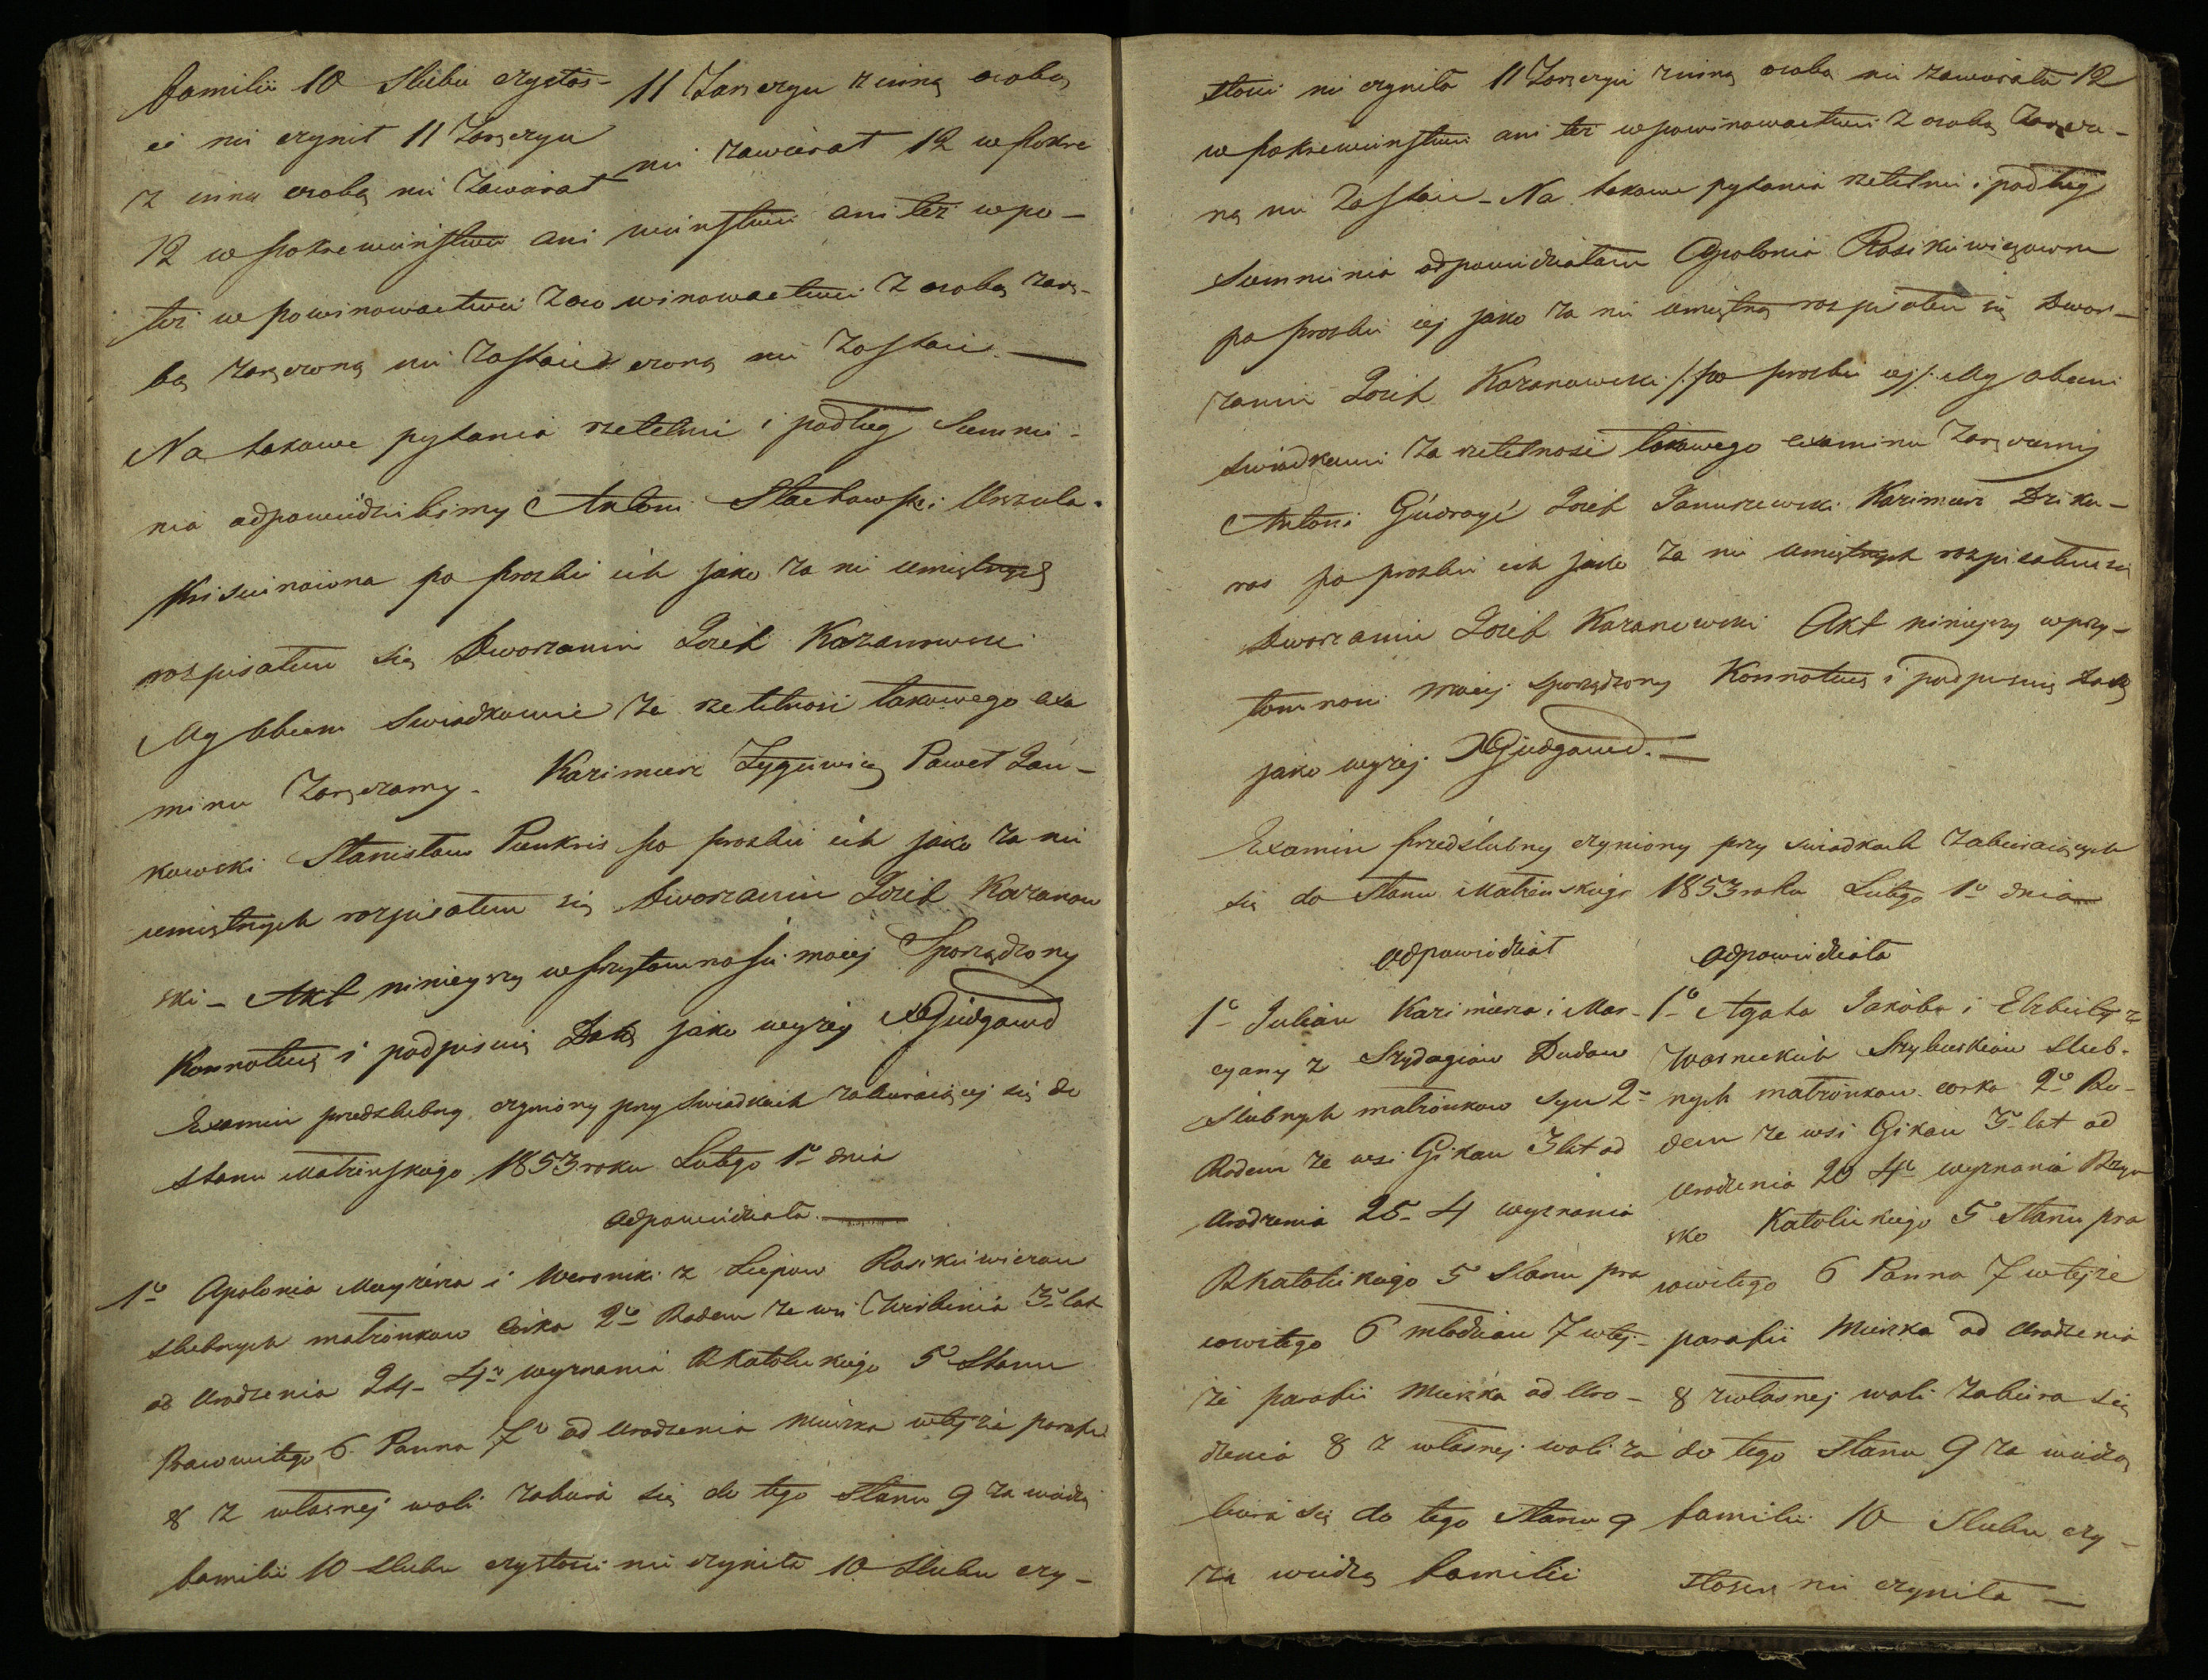 familii 10 Slubu czystos-
ci nie czynił 11 Zaręczyn
z inną osobą nie Zawierał
12 w pokrewieństwie ani
też w powinowactwie z oso
bą zaręczoną nie Zostaie
11 Zaręczyn z inną osobą
nie zawierał 12 w pokre
wieństwie ani też w po-
winowactwie z osobą zarę-
czoną nie Zostaie.
Na takowe pytania rzetelnie i podług Sumnie-
nia odpowiedzieliśmy Antoni Stachowski Urszula
po prozbie ich jako za nie umiętnych
rozpisałem się Dworzanin Jozef Kazanowski
My obecni Swiadkowie za rzetelność takowego exa
minu Zaręczamy. Kazimierz Zyguiewicz Paweł Jan-
kowski Stanisław Punkris po prozbie ich jako za nie
umiętnych rozpisałem się Dworzanin Jozef Kazanow
ski – Akt ninieyszy w przytomnosci moiej Sporządzony
Konnotuię i podpisuię Datą jako wyżey X Giedgowd
Examin predslubny czyniony przy swiadkach zabieraiącej się do
Stanu Małżeńskiego 1853 roku Lutego 1º dnia
odpowiedziała.
1º Apolonia Mayżera i Weroniki z Liepow Rosikiewiczow
slubnych małżonkow Corka 2º Rodem ze wsi 3º lat
od Urodzenia 24 4º wyznania RKatolickiego 5º Stanu
Prawowitego 6 Panna 7º od urodzenia mieszka w tejże parafii
8 z własnej woli zabiera się do tego Stanu 9 za wiedzą
familii 10 Slubu czystosci nie czyniła 10 Slubu czy-
stosci nie czyniła 11 Zaręczyn z inną osobą nie zawierała 12
w pokrewieństwie ani też w powinowactwie z osobą Zaręczo-
ną nie Zostaie – Na takowe pytania rzetelnie i podług
Sumnienia odpowiedziałam Apolonia Rosikiewiczowna
po prozbie jej jako za nie umiętną rozpisałem się Dwor-
zanin Jozef Kazanowski /: po prozbie jej :/ My obecni
swiadkowie za rzetelność takowego examinu Zaręczamy
Antoni Jozef Januszewski Kazimierz
po prozbie ich jako za nie umiętnych rozpisałem się
Dworzanin Jozef Kazanowski Akt ninieyszy w przy-
tomnosci moiej sporządzony Konnotuię i podpisuię Datą
jako wyżej X Giedgowd.
Examin przedślubny czyniony przy swiadkach zabieraiących
się do Stanu Małżeńskiego 1853 roku Lutego 1º dnia
odpowiedział
1º Julian Kazimierza i Mar-
cyany z Dudow
Slubnych małżonkow syn 2º
Rodem ze wsi Gikan 3 lat od
Urodzenia 25 4 wyznania
RKatolickiego 5 Stanu pra
wowitego 6 młodzian 7 w tej-
że parafii mieszka od Uro-
dzenia 8 z własnej woli za
biera się do tego Stanu 9
za wiedzą familii
odpowiedziała
1º Agata Jakóba i Elzbiety z
Slub-
nych małżonkow corka 2º Ro-
dem ze wsi Gikan 3º lat od
urodzenia 20 4º wyznania Rzym
sko Katolickiego 5 Stanu pra
wowitego 6 Panna 7 w tejże
parafii mieszka od Urodzenia
8 z własnej woli zabiera się
do tego Stanu 9 za wiedzą
familii 10 Slubu czy-
stosci nie czyniła